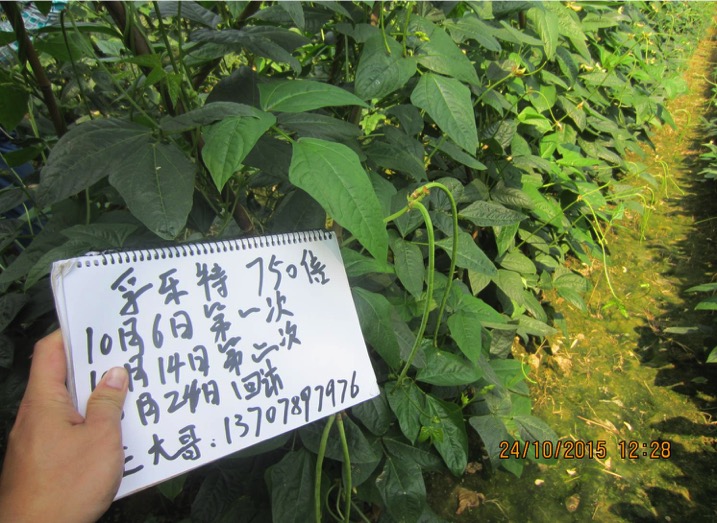 孚乐特 750倍
10月6日第一次
10月14日第二次
月24日回访
大哥:13707897976
24/10/2015 12:28